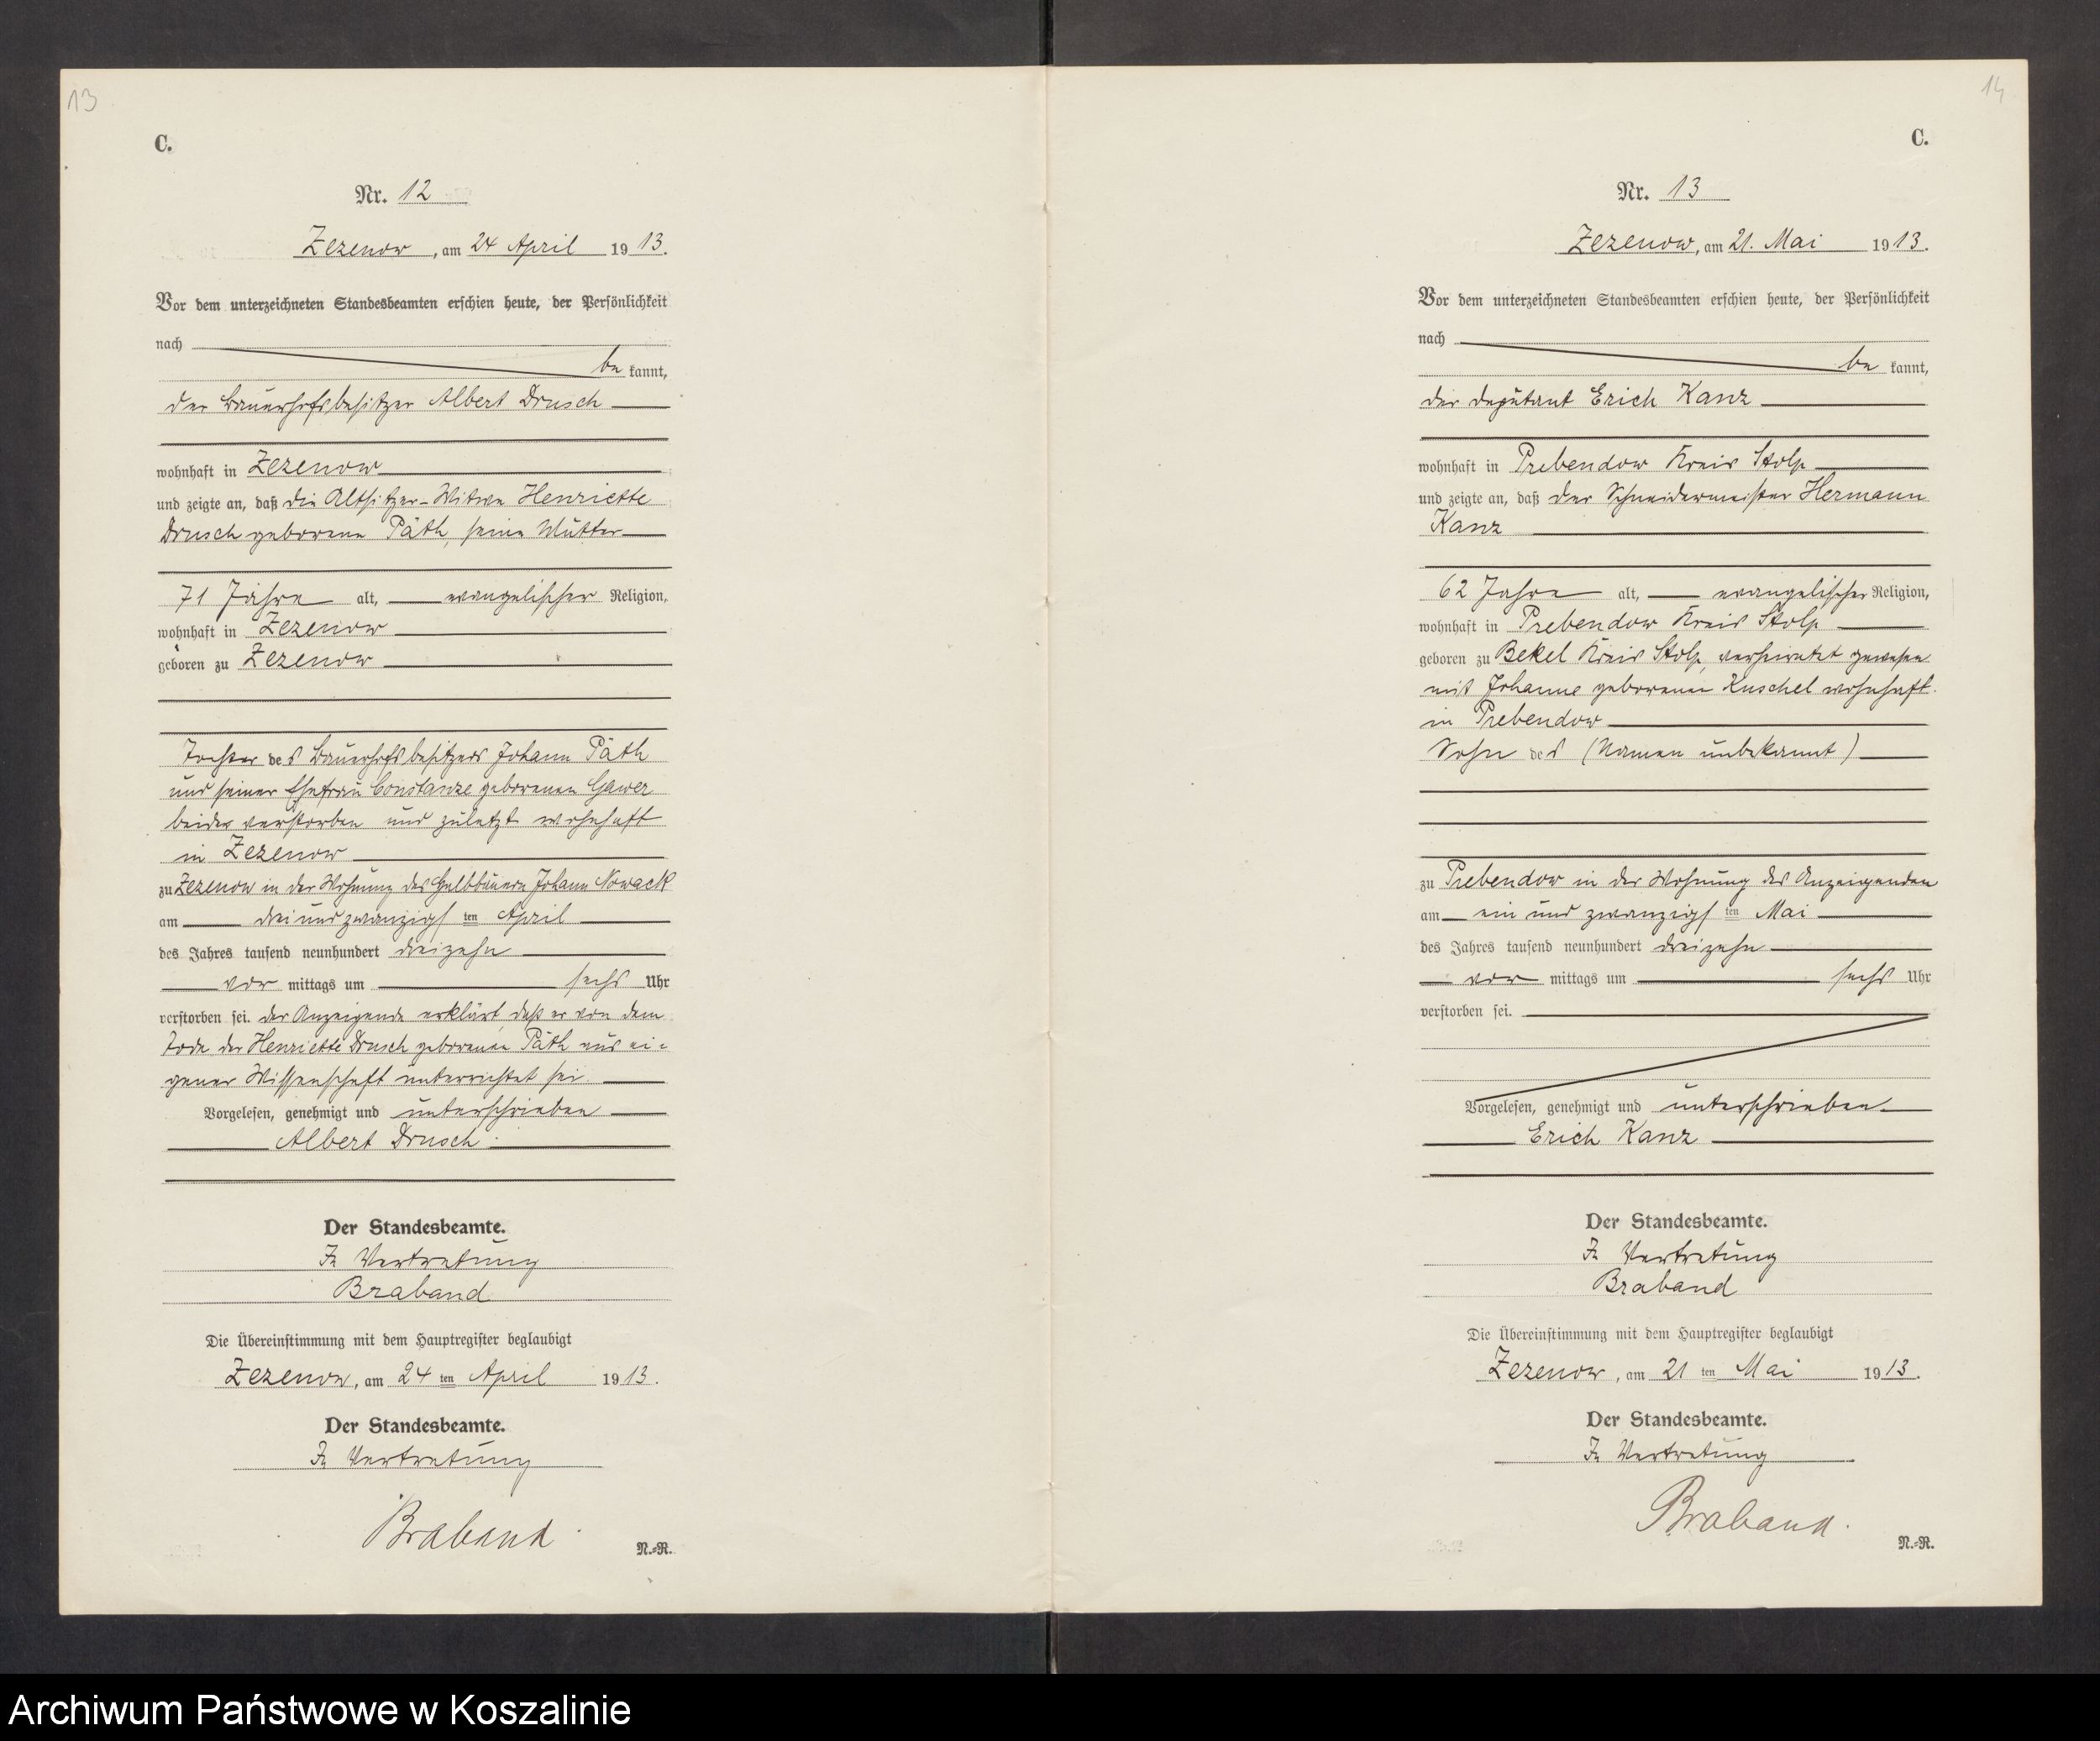 13
C.
Nr. 12
Zezenow, am 24 April 1913.
Vor dem unterzeichneten Standesbeamten erschien heute, der Persönlichkeit
nach
be kannt,
der Bauerhofsbesitzer Albert Drusch
wohnhaft in Zezenow
und zeigte an, daß die Altsitzer-Witwe Henriette
Drusch geborene Päth, seine Mutter
71 Jahre alt, evangelischer Religion,
wohnhaft in Zezenow
geboren zu Zezenow
Tochter des Bauerhofsbesitzers Johann Päth
und seiner Ehefrau Constanze geborenen Gawer
beide verstorben und zuletzt wohnhaft
in Zezenow
zu Zezenow in der Wohnung des Halbbauern Johann Nowack
am drei und zwanzigs ten April
des Jahres tausend neunhundert dreizehn
vor mittags um sechs Uhr
verstorben sei. der Anzeigende erklärt, daß er von dem
Tode der Henriette Drusch geborenen Päth aus ei-
gener Wissenschaft unterrichtet sei.
Vorgelesen, genehmigt und unterschrieben
Albert Drusch.
Der Standesbeamte.
In Vertretung
Braband
Die Übereinstimmung mit dem Hauptregister beglaubigt
Zezenow, am 24 ten April 1913.
Der Standesbeamte.
In Vertretung
Braband.
N.=R.
14
C.
Nr. 13
Zezenow, am 21. Mai 1913.
Vor dem unterzeichneten Standesbeamten erschien heute, der Persönlichkeit
nach
be kannt,
der Deputant Erich Kanz
wohnhaft in Prebendow Kreis Stolp
und zeigte an, daß der Schneidermeister Hermann
Kanz
62 Jahre alt, evangelischer Religion,
wohnhaft in Prebendow Kreis Stolp
geboren zu Bekel Kreis Stolp, verheiratet gewesen
mit Johanne geborenen Kuschel wohnhaft
in Prebendow
Sohn des (Namen unbekannt)
zu Prebendow in der Wohnung des Anzeigenden
am ein und zwanzigs ten Mai
des Jahres tausend neunhundert dreizehn
vor mittags um sechs Uhr
verstorben sei.
Vorgelesen, genehmigt und unterschrieben
Erich Kanz
Der Standesbeamte.
In Vertretung
Braband
Die Übereinstimmung mit dem Hauptregister beglaubigt
Zezenow, am 21 ten Mai 1913.
Der Standesbeamte.
In Vertretung
Braband.
N.=R.
Archiwum Państwowe w Koszalinie